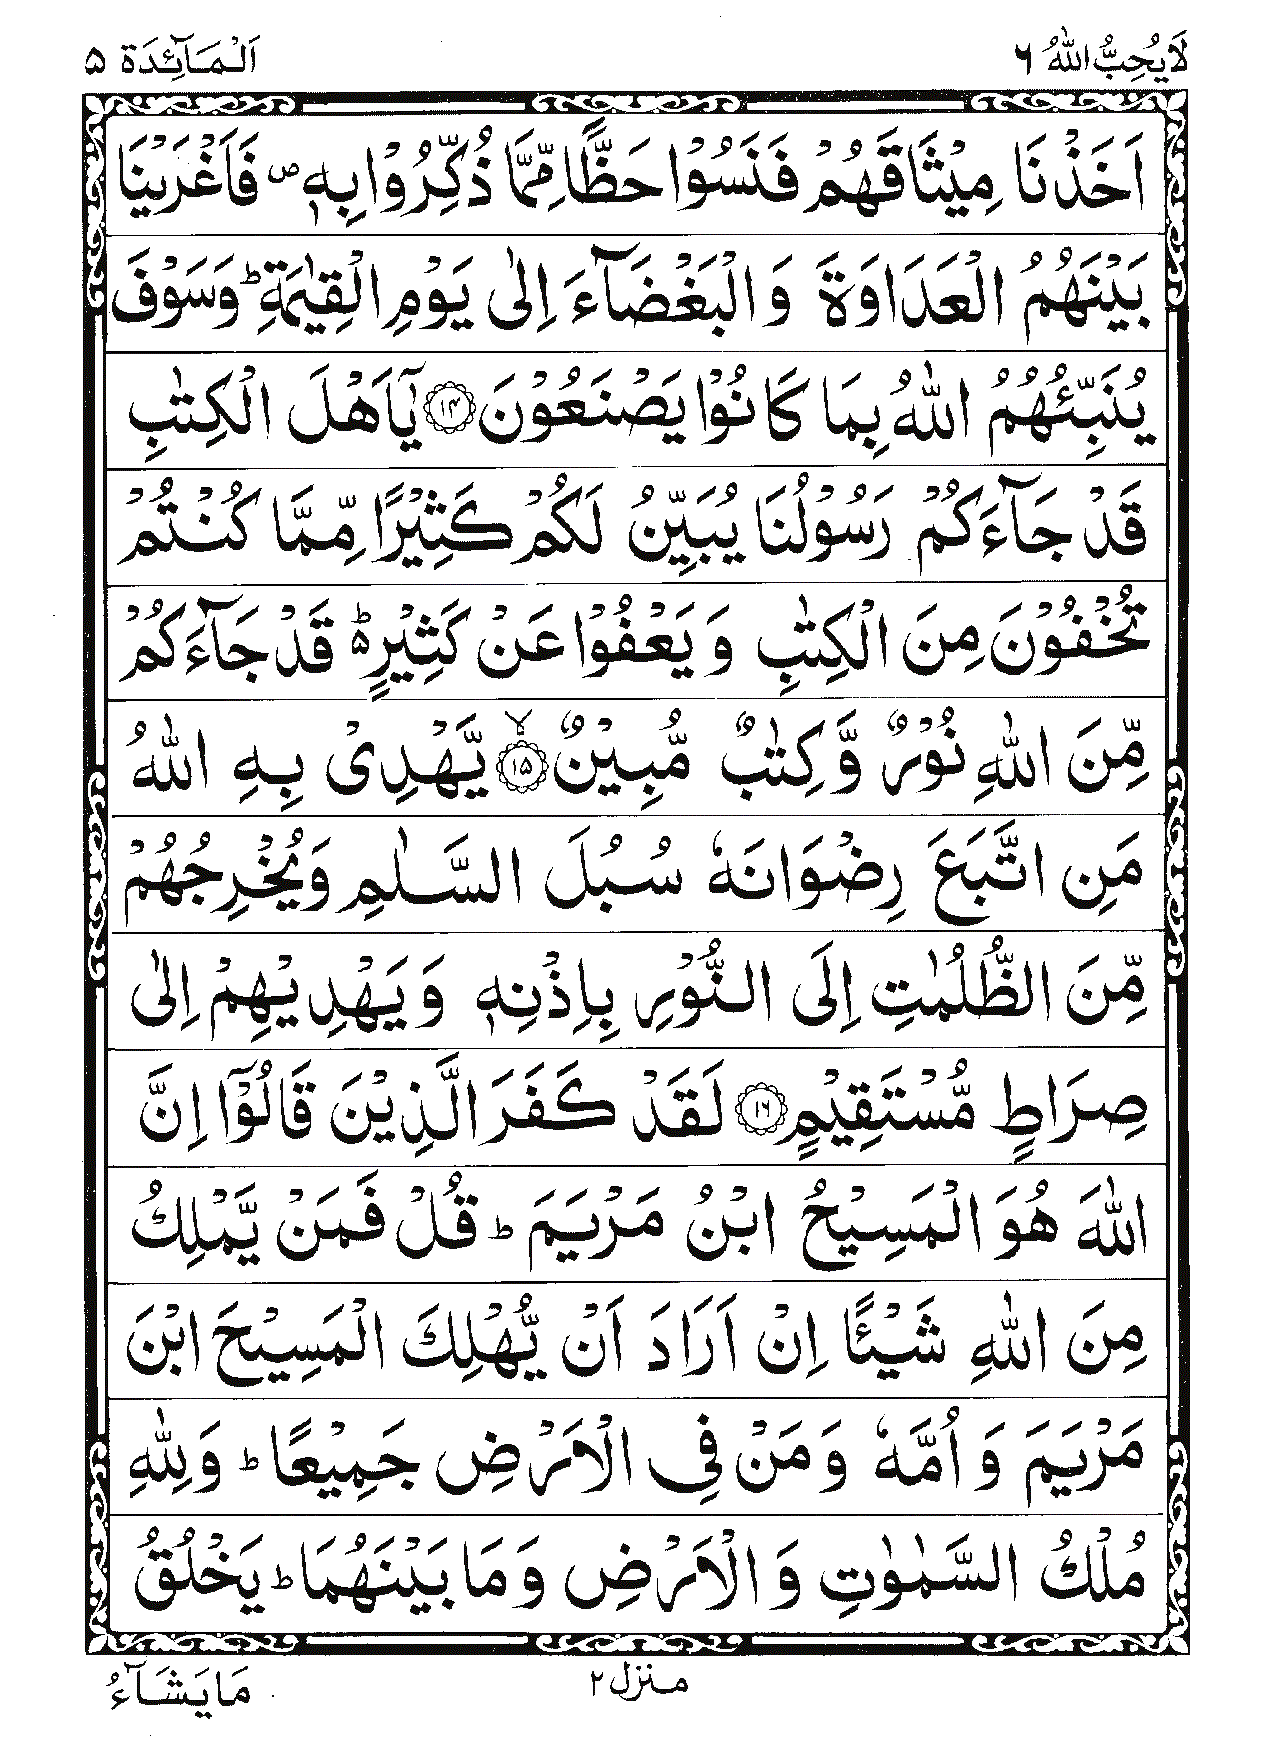 لَا يُحِبُّ اللّٰهُ ٦
اَلْمَآئِدَة ٥
اَخَذْنَا مِيْثَاقَهُمْ فَنَسُوْا حَظًّا مِّمَّا ذُكِّرُوْا بِهٖ ص فَاَغْرَيْنَا
بَيْنَهُمُ الْعَدَاوَةَ وَالْبَغْضَآءَ اِلٰى يَوْمِ الْقِيٰمَةِ ط وَسَوْفَ
يُنَبِّئُهُمُ اللّٰهُ بِمَا كَانُوْا يَصْنَعُوْنَ ﴿۱۴﴾ يٰٓاَهْلَ الْكِتٰبِ
قَدْ جَآءَكُمْ رَسُوْلُنَا يُبَيِّنُ لَكُمْ كَثِيْرًا مِّمَّا كُنْتُمْ
تُخْفُوْنَ مِنَ الْكِتٰبِ وَيَعْفُوْا عَنْ كَثِيْرٍ ۵ ط قَدْ جَآءَكُمْ
مِّنَ اللّٰهِ نُوْرٌ وَّكِتٰبٌ مُّبِيْنٌ لا ﴿۱۵﴾ يَّهْدِىْ بِهِ اللّٰهُ
مَنِ اتَّبَعَ رِضْوَانَهٗ سُبُلَ السَّلٰمِ وَيُخْرِجُهُمْ
مِّنَ الظُّلُمٰتِ اِلَى النُّوْرِ بِاِذْنِهٖ وَيَهْدِيْهِمْ اِلٰى
صِرَاطٍ مُّسْتَقِيْمٍ ﴿۱۶﴾ لَقَدْ كَفَرَ الَّذِيْنَ قَالُوْٓا اِنَّ
اللّٰهَ هُوَ الْمَسِيْحُ ابْنُ مَرْيَمَ ط قُلْ فَمَنْ يَّمْلِكُ
مِنَ اللّٰهِ شَيْئًا اِنْ اَرَادَ اَنْ يُّهْلِكَ الْمَسِيْحَ ابْنَ
مَرْيَمَ وَاُمَّهٗ وَمَنْ فِى الْاَرْضِ جَمِيْعًا ط وَلِلّٰهِ
مُلْكُ السَّمٰوٰتِ وَالْاَرْضِ وَمَا بَيْنَهُمَا ط يَخْلُقُ
منزل ۲
مَا يَشَآءُ